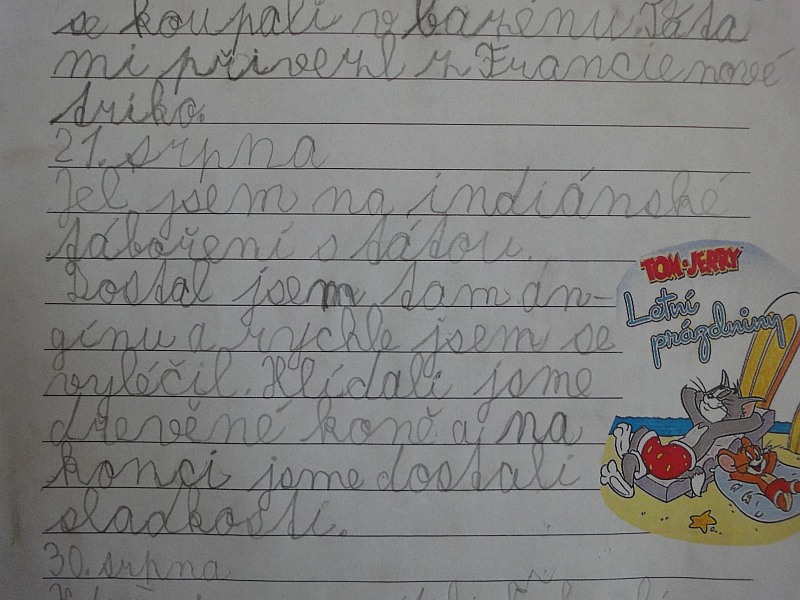 se koupali v bazénu. Táta
mi přivezl z Francie nové
triko.
21. srpna
Jel jsem na indiánské
táboření s tátou.
Dostal jsem tam án-
gínu a rychle jsem se
vyléčil. Hlídali jsme
dřevěné koně a na
konci jsme dostali
sladkosti.
30. srpna
TOM AND JERRY
Letní
prázdniny